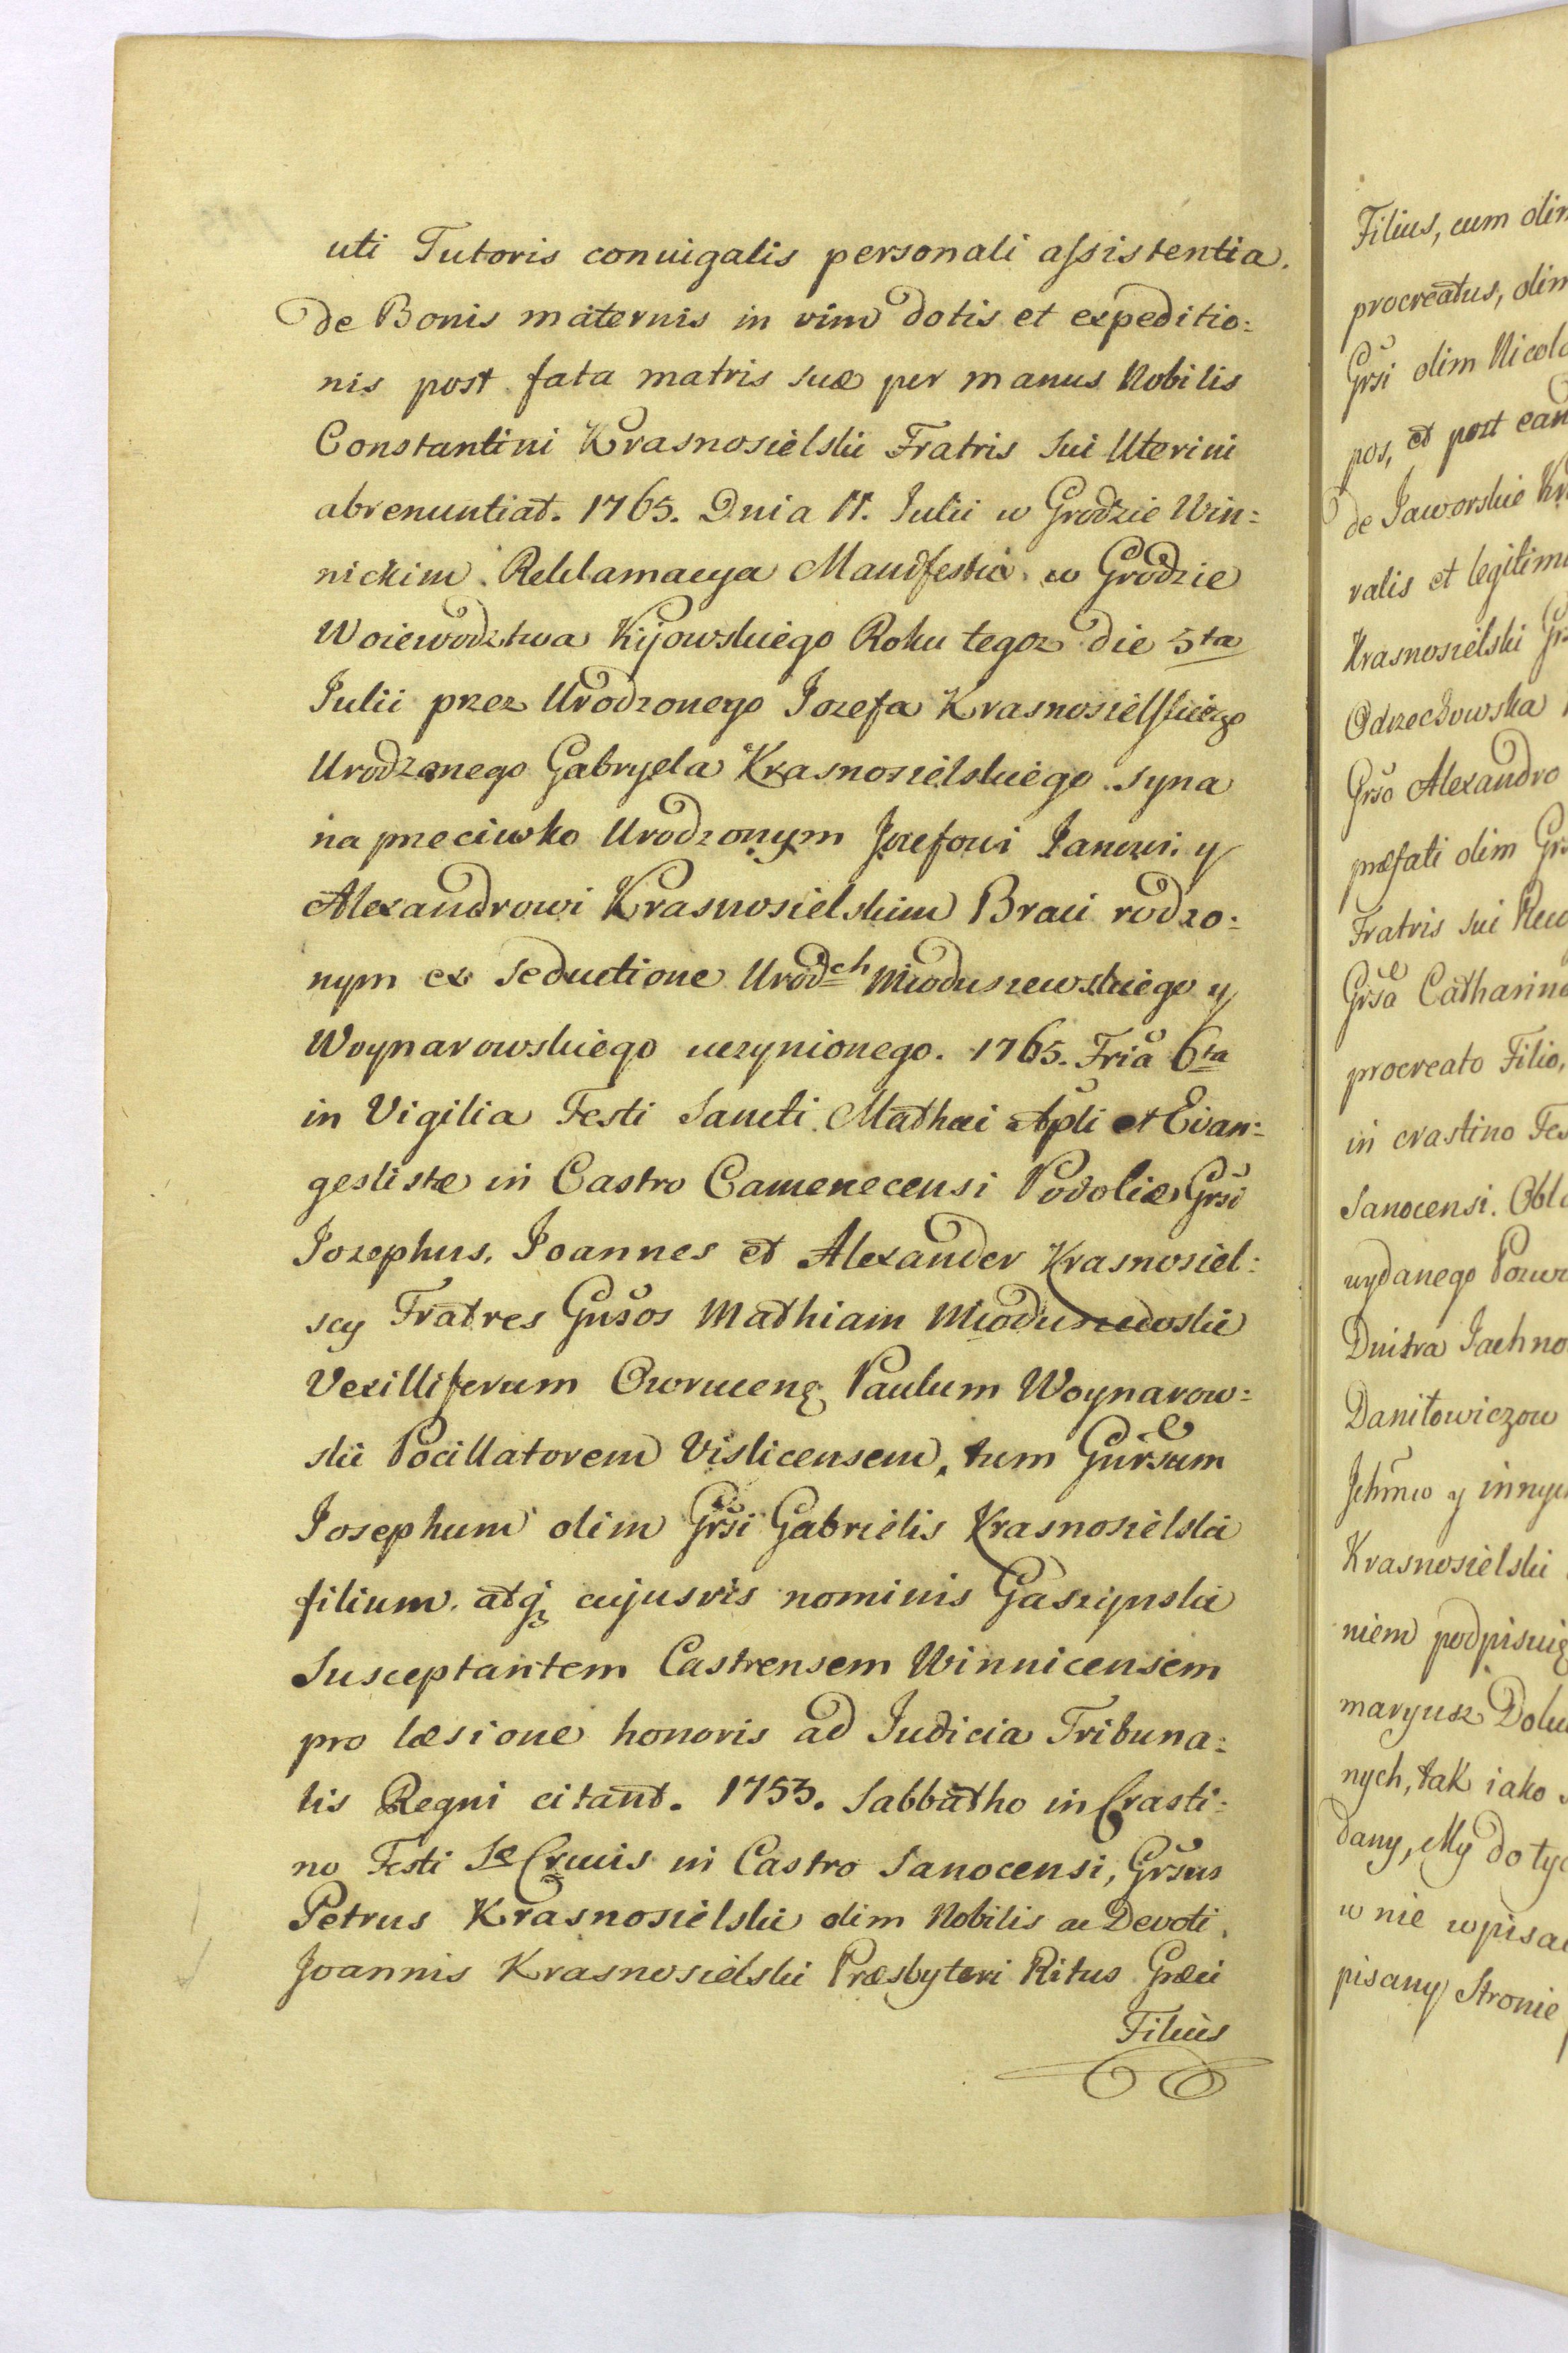 uti Tutoris conuigalis personali assistentia.
de Bonis maternis in vim dotis et expeditio:
nis post fata matris suæ per manus Nobilis
Constantini Krasnosielski Fratris sui Uterini
abrenuntiat. 1765. Dnia 11. Iulii w Grodzie Win:
nickim. Reklamacya Manifestu w Grodzie
Woiewodztwa Kijowskiego Roku tegoz die 5ta
Iulii przez Urodzonego Iozefa Krasnosielskiego
Urodzonego Gabryela Krasnosielskiego syna
na przeciwko Urodzonym Jozefowi Ianowi y
Alexandrowi Krasnosielskim Braci rodzo:
nym ex seductione Urodch Mioduszewskiego y
Woynarowskiego uczynionego. 1765. Fria 6ta
in Vigilia Festi Sancti Mathæi Apli et Evan:
geslistæ in Castro Camenecensi Podoliæ Grsi
Iozephus, Ioannes et Alexander Krasnosiel:
scy Fratres Gnsos Mathiam Mioduszewski
Vexilliferum Owrucenę Paulum Woynarow:
ski Pocillatorem Vislicensem, tum Gnrsum
Iosephum olim Grsi Gabrielis Krasnosielski
filium. atqꝫ cujusvis nominis Gaszynski
Susceptantem Castrensem Winnicensem
pro læsione honoris ad Iudicia Tribuna:
lis Regni citant. 1753. Sabbatho in Crasti:
no Festi Sæ Crucis in Castro Sanocensi, Grsus
Petrus Krasnosielski olim Nobilis ac Devoti
Joannis Krasnosielski Præsbyteri Ritus Græci
Filius
Filius, cum
procreatus,
Grsi olim
pos, et post
de Jaworskie
valis et
Krasnosielski
Odrzechowska
Grso Alexandro
præfati olim
Fratris sui
Grsa
procreato Filio,
in crastino
Sanocensi.
wydanego
Dnistra
Danilowiczow
Jchmw y
Krasnosielski
niem
nych, tak iako
dany, My do
w nie
pisany Stronie